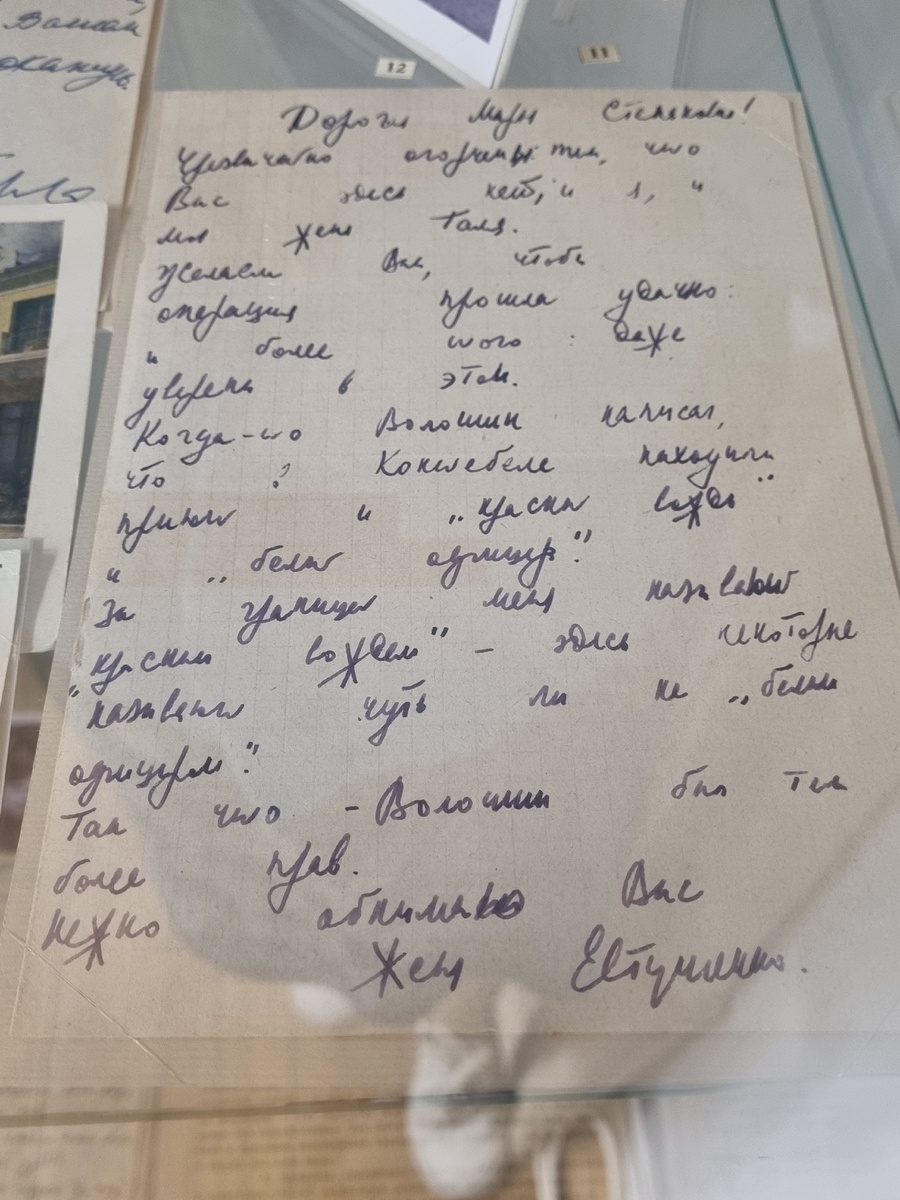 Вашей
окажусь.
12
11
Дорогая Марья Степановна!
Чрезвычайно огорчены тем, что
Вас здесь нет, и я, и
моя жена Галя.
Желаем Вам, чтобы
операция прошла удачно:
и более того: даже
уверены в этом.
Когда-то Волошин написал,
что в Коктебеле находили
приют и „красный вождь"
и „белый офицер".
За границей меня называют
"красным вождём" – здесь некоторые
называют чуть ли не „белым
офицером".
Так что – Волошин был тем
более прав.
Нежно обнимаю Вас
Женя Евтушенко.